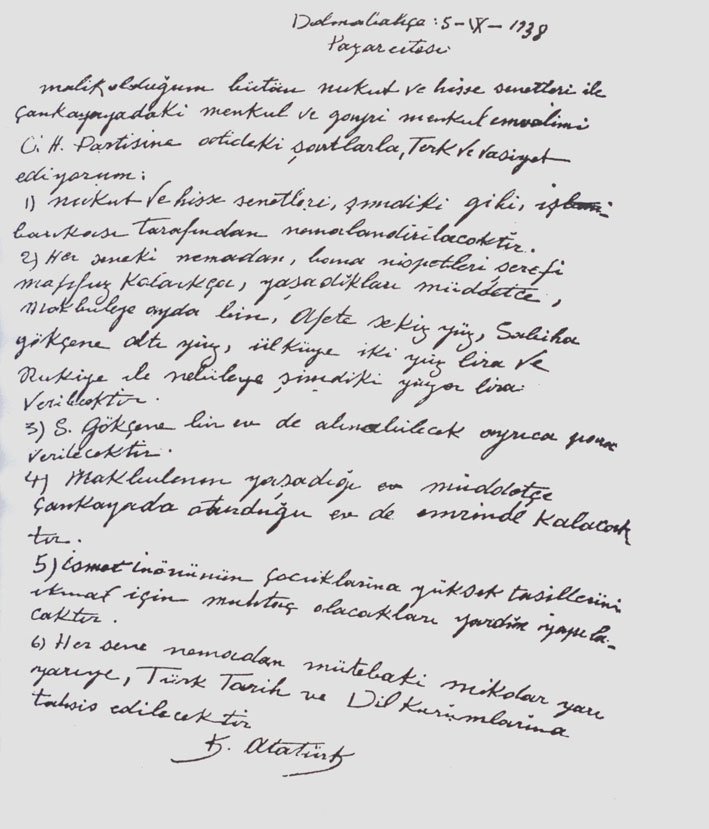 Dolmabahçe: 5-IX-1938
Pazartesi
malik olduğum bütün nukut ve hisse senetleri ile
Çankayayadaki menkul ve gayri menkul emvalimi
C. H. Partisine atideki şartlarla, Terk ve vasiyet
ediyorum:
1) nukut ve hisse senetleri, şimdiki gibi, iş
bankası tarafından nemalandırılacaktır.
2) Her seneki nemadan, bana nispetleri şerefi
mahfuz kaldıkça, yaşadıkları müddetce,
Makbuleye ayda bin, Afete sekiz yüz, Sabiha
gökçene altı yüz, ülküye iki yüz lira ve
Rukiye ile nebileye şimdiki yüzer lira
verilecektir.
3) S. Gökçene bir ev de alınabilecek ayrıca para
verilecektir.
4) Makbulenin yaşadığı müddetçe
Çankayada oturduğu ev de emrinde kalacak
tır.
5) ismet inönünün çocuklarına yüksek tasillerini
ikmal için muhtaç olacakları yardım yapıla-
caktır.
6) Her sene nemadan mütebaki mikdar yarı
yarıya, Türk Tarih ve Dil Kurumlarına
tahsis edilecektir
K. Atatürk